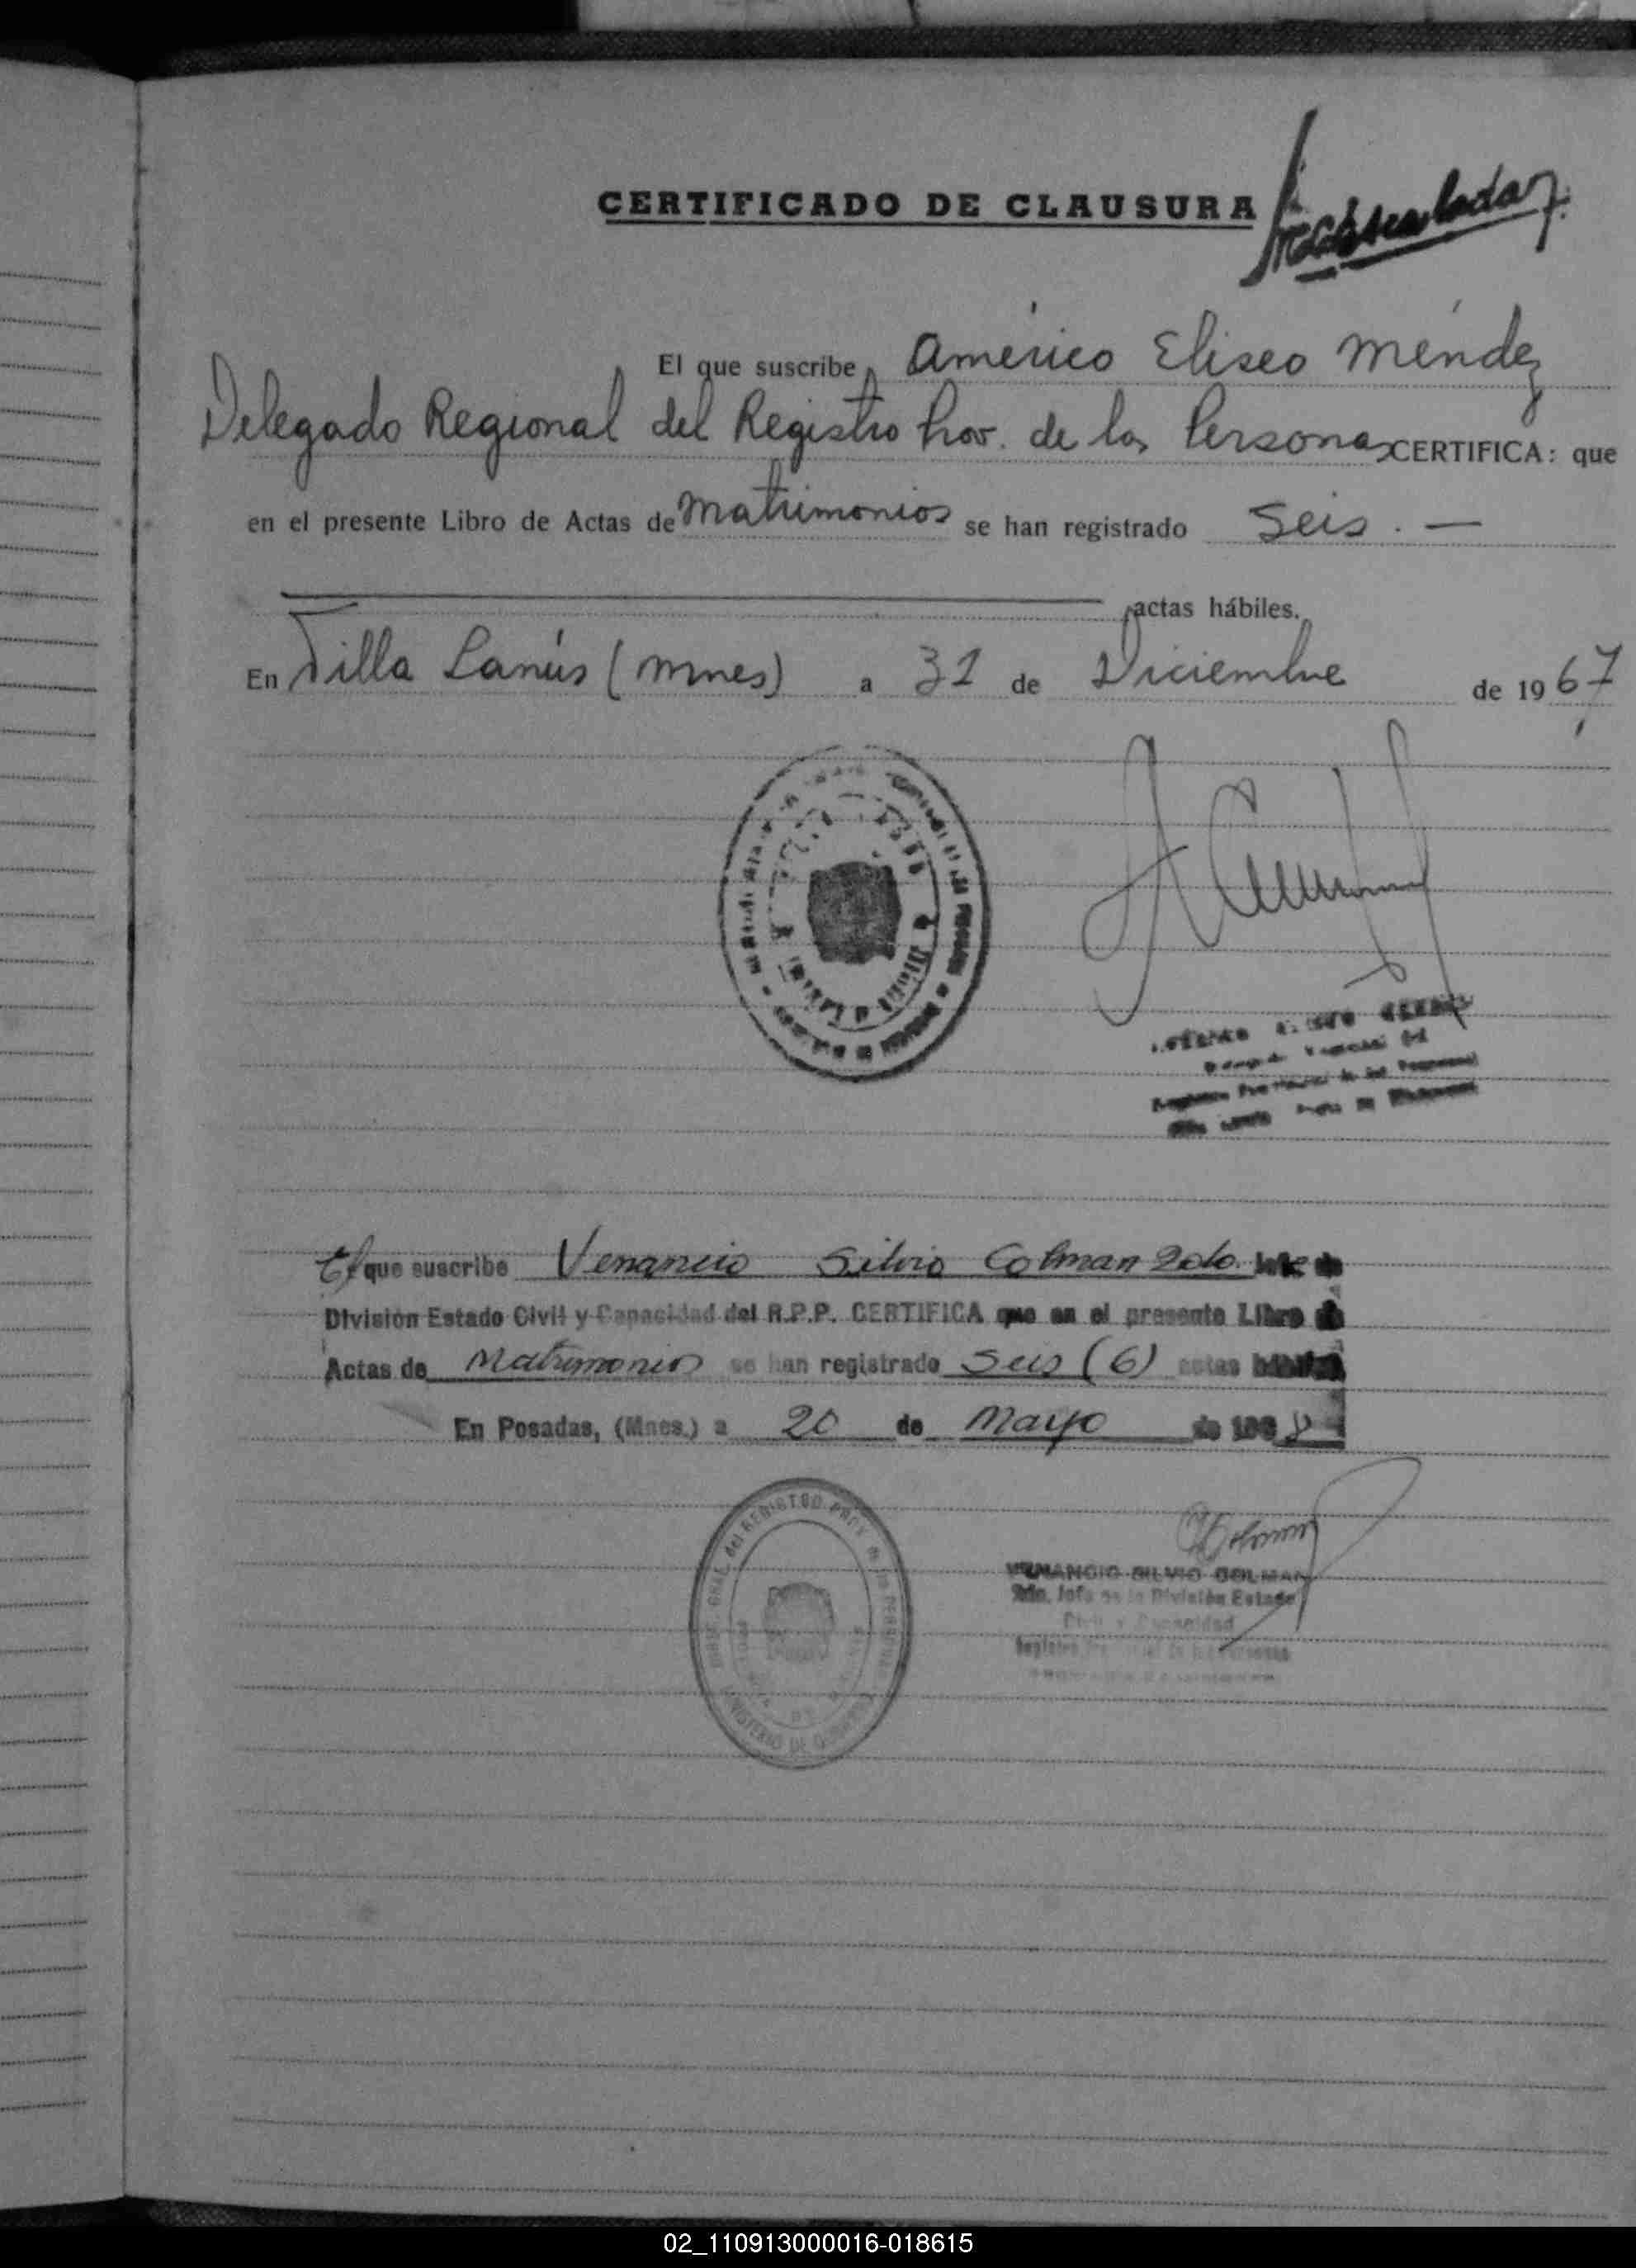 CERTIFICADO DE CLAUSURA
El que suscribe, Américo Eliseo Méndez
Delegado Regional del Registro Prov. de las Personas CERTIFICA: que
en el presente Libro de Actas de Matrimonios se han registrado Seis. —
actas hábiles.
En Villa Lanús (Mnes) a 31 de Diciembre de 1967
El que suscribe Venancio Silvio Colman 2do. Jefe de
División Estado Civil y Capacidad del R.P.P. CERTIFICA que en el presente Libro de
Actas de Matrimonios se han registrado Seis (6) actas hábiles
En Posadas, (Mnes.) a 20 de Mayo de 1968
DIREC. GRAL. del REGISTRO PROV. de las PERSONAS
MINISTERIO DE GOBIERNO
VENANCIO SILVIO COLMAN
2do. Jefe de la División Estado
Civil y Capacidad
02_110913000016-018615